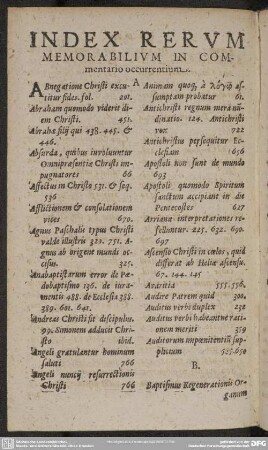 INDEX RERVM
MEMORABILIVM IN COM-
mentario occurrentium.
ABnegatione Christi excu-
titur fides. fol. 201.
Abraham quomodo viderit di-
em Christi. 451.
Abrahæ filij qui 438. 445. &
446.
Absurda, quibus involvuntur
Omnipræsentiæ Christi im-
pugnatores 66
Affectus in Christo 531. & seq.
536
Afflictionem & consolationem
vices 670.
Agnus Paschalis typus Christi
valde illustris 321. 751. A-
gnus ab origine mundi oc-
cisus. 325.
Anabaptistarum error de Pæ-
dobaptismo 136. de iura-
mentis 488. de Ecclesia 388.
389. 601. 641.
Andreas Christi fit discipulus.
99. Simonem adducit Chri-
sto ibid.
Angeli gratulantur hominum
saluti 766
Angeli nuncij resurrectionis
Christi 766
Animam quoq, à λόγῳ as-
sumptam probatur 61.
Antichristi regnum mera nu-
dinatio. 124. Antichristi
vox 722
Antichristus persequitur Ec-
clesiam 656
Apostoli non sunt de mundo
693.
Apostoli quomodo Spiritum
sanctum accipiant in die
Pentecostes 627
Arrianæ interpretationes re-
felluntur. 225. 632. 690.
697
Ascensio Christi in cœlos, quid
differat ab Heliæ ascensu.
67. 144. 145
Avaritia 555. 556.
Audire Patrem quid 300.
Auditus verbi duplex 238
Auditus verbi habeantne rati-
onem meriti 359
Auditorum impœnitentiū sup-
plicium
B.
Baptismus Regenerationis Or-
ganum